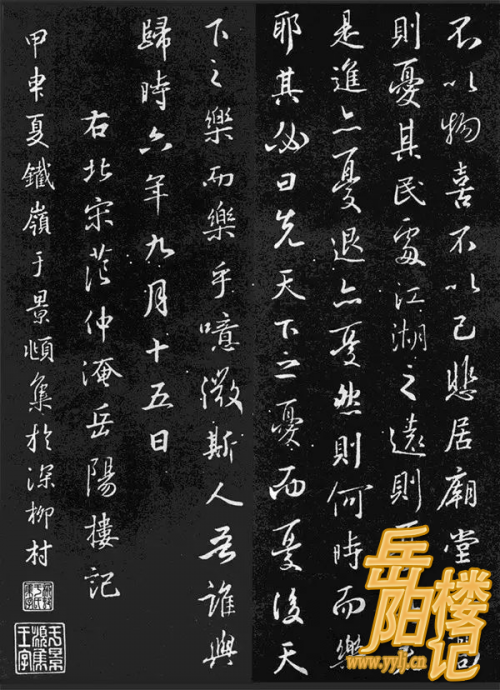 不以物喜不以己悲居廟堂
則憂其民處江湖之遠則
是進亦憂退亦憂然則何時而樂
耶其必曰先天下之憂而憂後天
下之樂而樂乎噫微斯人吾誰與
歸時六年九月十五日
右北宋范仲淹岳陽樓記
甲申夏鐵嶺于景頫集於深柳村
岳阳楼记
www.yylj.cn